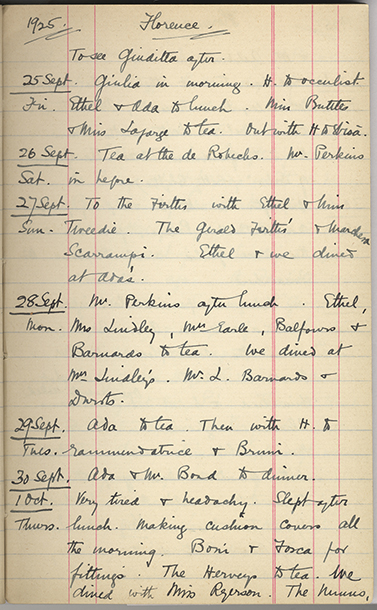 1925. Florence.
To see Giuditta after.
25 Sept. Giulia in morning. H. to occulist.
Fri. Ethel & Ada to lunch. Miss
& Miss Lafarge to tea. Out with H. to
26 Sept. Tea at the de Robecks. Mr. Perkins
Sat. in before.
27 Sept. To the with Ethel & Miss
Sun. Tweedie. The Gerald & Marchesa
Scarrampi. Ethel & we dined
at Ada's.
28 Sept. Mr. Perkins after lunch. Ethel,
Mon. Mrs Lindley, Mrs Earle, Balfours &
Barnardos to tea. We dined at
Mrs Lindley's. Mr. L. Barnardos &

29 Sept. Ada to tea. Then with H. to
Tues. rammendatrice &
30 Sept. Ada & Mr. Bond to dinner.
1 Oct. Very tired & headachy. Slept after
Thurs. lunch. Making cushion covers all
the morning. & Tosca for
fittings. The Herveys to tea. We
dined with Miss Ryerson. The